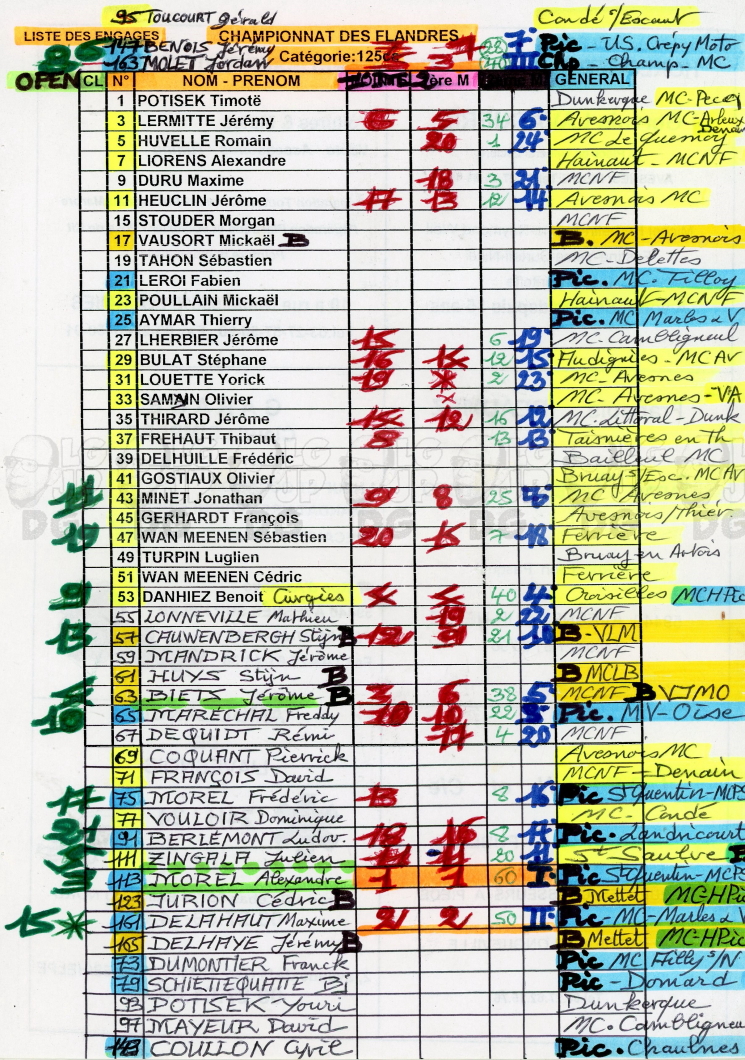 95 TOUCOURT Gérald Condé s/Escaut
LISTE DES ENGAGES CHAMPIONNAT DES FLANDRES
8 147 BENOIS Jérémy 28 7 Pic - U.S. Crépy Moto
163 MOLET Jordan Catégorie:125cc III Chp - Champ - MC
OPEN CL N° NOM - PRENOM ère M GENERAL
1 POTISEK Timotë Dunkerque MC-
3 LERMITTE Jérémy 6 5 34 6 Avesnois MC-Arleux Denain
5 HUVELLE Romain 20 1 24 MC Le Quesnoy
7 LIORENS Alexandre Hainaut - MCNF
9 DURU Maxime 18 3 21 MCNF
11 HEUCLIN Jérôme 17 13 12 14 Avesnois MC
15 STOUDER Morgan MCNF
17 VAUSORT Mickaël B B. MC-Avesnois
19 TAHON Sébastien MC-Delettes
21 LEROI Fabien Pic. MC. Tilloy
23 POULLAIN Mickaël Hainaut-MCNF
25 AYMAR Thierry Pic. MC Marles a V
27 LHERBIER Jérôme 15 6 19 MC-Cambligneul
29 BULAT Stéphane 16 14 12 15 Fludignies - MCAV
31 LOUETTE Yorick 19 * 2 23 MC-Avesnes
33 SAMAIN Olivier x MC-Avesnes-VA
35 THIRARD Jérôme 14 12 16 12 MC.Littoral-Dunk
37 FREHAUT Thibaut 8 13 13 Taisnières en Th
39 DELHUILLE Frédéric Bailleul MC
41 GOSTIAUX Olivier Bruay s/Esc. MCAV
11 43 MINET Jonathan 9 8 25 MC Avesnes
45 GERHARDT François Avesnois/Thiér
19 47 WAN MEENEN Sébastien 20 15 7 18 Ferrière
49 TURPIN Luglien Bruay en Artois
51 WAN MEENEN Cédric Ferrière
9 53 DANHIEZ Benoit Curgies 4 4 40 4 Croisilles MCHPic
55 LONNEVILLE Mathieu 19 2 22 MCNF
13 57 CAUWENBERGH Stijn B 12 9 21 10 B-VLM
59 MANDRICK Jérôme MCNF
61 HUYS Stijn B B MCLB
63 BIETS Jérôme B 3 6 38 5 MCNF B VJMO
10 65 MARÉCHAL Freddy 10 10 22 Pic. MV-Oise
67 DEQUIDT Rémi 17 4 20 MCNF
69 COQUANT Pierrick Avesnois MC
71 FRANÇOIS David MCNF-Denain
17 75 MOREL Frédéric 13 8 16 Pic St Quentin-MCPS
77 VOULOIR Dominique MC-Condé
91 BERLÉMONT Ludov. 18 16 8 17 Pic. Landricourt
111 ZINGALA Julien 20 11 St Saulve B
113 MOREL Alexandre 1 1 60 I Pic St Quentin-MCPS
123 JURION Cédric B B Mettet MCHPic
15* 161 DELAHAUT Maxime 2 2 50 II Pic-MC-Marles a V
165 DELHAYE Jérémy B B Mettet MCHPic
73 DUMONTIER Franck Pic MC Ailly s/N
79 SCHIETTEQUATTE Bi Pic - Domard
93 POTISEK Youri Dunkerque
97 MAYEUR David MC. Cambligneu
143 COULLON Cyril Pic. Chaulnes